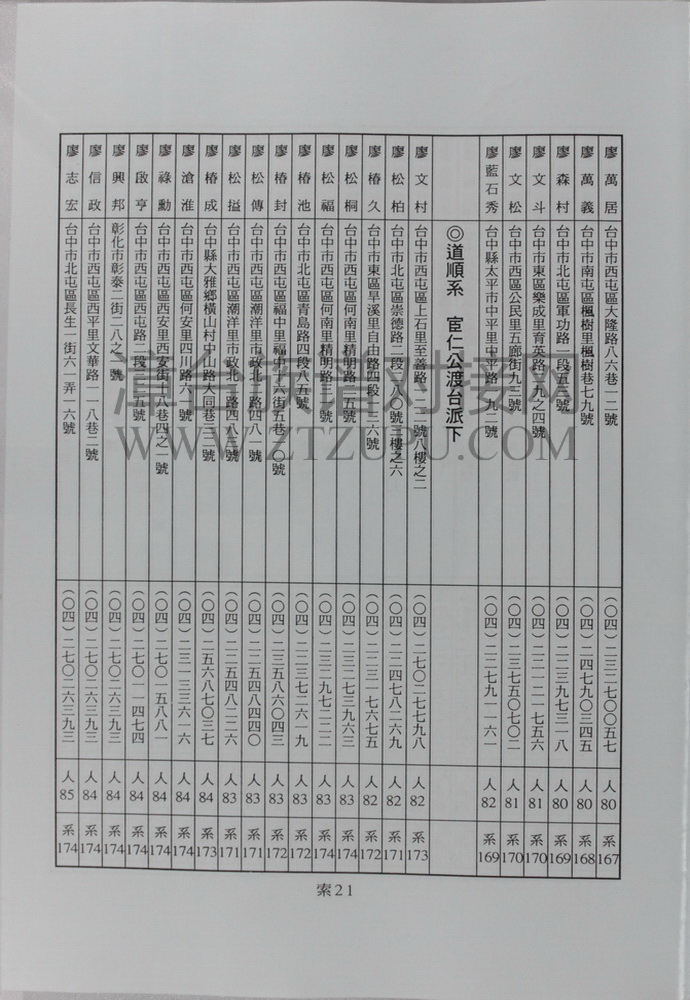 廖萬居 台中市西屯區大隆路八六巷一二號 (〇四)二三二七〇〇五七 人80 系167
廖萬義 台中市南屯區楓樹里楓樹巷七九號 (〇四)二四七九〇三四五 人80 系168
廖森村 台中市北屯區軍功路一段五八號 (〇四)二三九七三一八 人80 系169
廖文斗 台中市東區樂成里育英路一九之四號 (〇四)二二一二一七五六 人81 系170
廖文松 台中市西區公民里五廊街九七號 (〇四)二三七五〇七〇二 人81 系170
廖藍石秀 台中縣太平市中平里中平路一九一號 (〇四)二二七九一一六一 人82 系169
◎道順系 宦仁公渡台派下
廖文村 台中市西屯區上石里至善路一二一號八樓之二 (〇四)二七〇二七七九八 人82 系173
廖松柏 台中市北屯區崇德路二段一八〇號三樓之六 (〇四)二二四七八二六九 人82 系171
廖椿久 台中市東區旱溪里自由路四段一三六號 (〇四)二二三一七六七五 人82 系172
廖松桐 台中市西屯區何南里精明路 (〇四)二三二七三九六三 人83 系174
廖松福 台中市西屯區何南里精明路 (〇四)二三二九七二二二 人83 系174
廖椿池 台中市北屯區青島路四段八五號 (〇四)二二三七二六一九 人83 系172
廖椿封 台中市西屯區福中里福中十六街五巷一〇號 (〇四)二三五八六〇四三 人83 系172
廖松傳 台中市西屯區潮洋里市政北一路四八一號 (〇四)二二五四八四四〇 人83 系171
廖松搤 台中市西屯區潮洋里市政北一路四八三號 (〇四)二二五四八二二六 人83 系171
廖椿成 台中縣大雅鄉橫山村中山路大同巷一三號 (〇四)二五六八七〇三七 人84 系173
廖滄淮 台中市西屯區何安里四川路六一號 (〇四)二三一三三六一六 人84 系174
廖祿勳 台中市西屯區西安里西安街十八巷四之一號 (〇四)二七〇一五八八一 人84 系174
廖啟亨 台中市西屯區西屯路二段一五號 (〇四)二七〇一一四七四 人84 系174
廖興邦 彰化市彰泰二街二八之一號 (〇四)二七〇二六三九三 人84 系174
廖信政 台中市西屯區西平里文華路一一八巷二號 (〇四)二七〇二六三九三 人84 系174
廖志宏 台中市北屯區長生一街六一弄一六號 (〇四)二七〇二六三九三 人85 系174
索21
漳台族谱对接网
WWW.ZTZUPU.COM